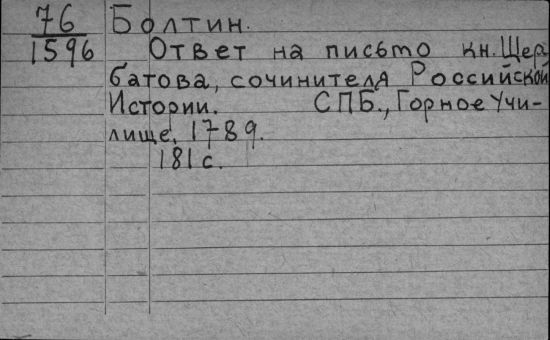 76 Болтин.
1596 Ответ на письмо кн. Щер-
батова, сочинителя Российской
Истории. СПБ., Горное Учи-
лище, 1789.
181 с.